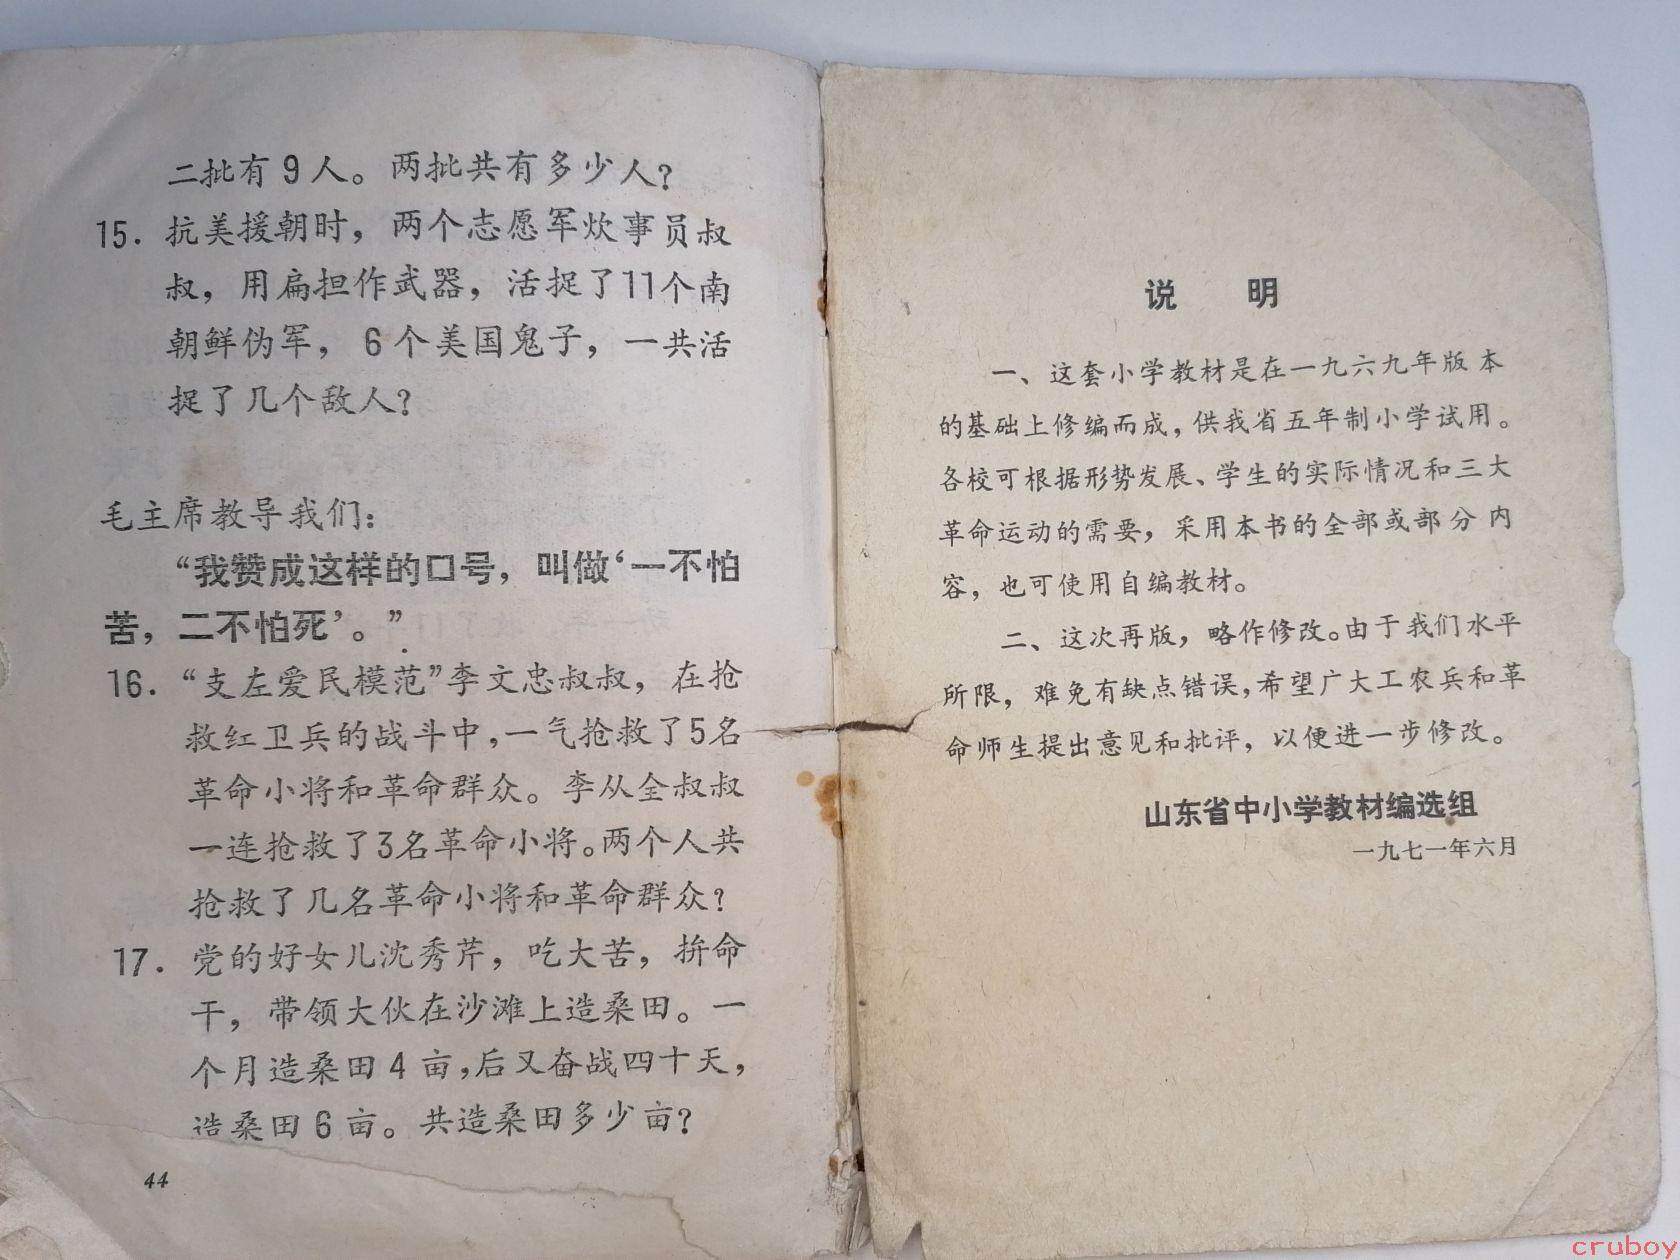 二批有9人。两批共有多少人？
15. 抗美援朝时，两个志愿军炊事员叔
叔，用扁担作武器，活捉了11个南
朝鲜伪军，6个美国鬼子，一共活
捉了几个敌人？
毛主席教导我们：
“我赞成这样的口号，叫做‘一不怕
苦，二不怕死’。”
16. “支左爱民模范”李文忠叔叔，在抢
救红卫兵的战斗中，一气抢救了5名
革命小将和革命群众。李从全叔叔
一连抢救了3名革命小将。两个人共
抢救了几名革命小将和革命群众？
17. 党的好女儿沈秀芹，吃大苦，拚命
干，带领大伙在沙滩上造桑田。一
个月造桑田4亩，后又奋战四十天，
造桑田6亩。共造桑田多少亩？
44
说 明
一、这套小学教材是在一九六九年版本
的基础上修编而成，供我省五年制小学试用。
各校可根据形势发展、学生的实际情况和三大
革命运动的需要，采用本书的全部或部分内
容，也可使用自编教材。
二、这次再版，略作修改。由于我们水平
所限，难免有缺点错误，希望广大工农兵和革
命师生提出意见和批评，以便进一步修改。
山东省中小学教材编选组
一九七一年六月
cruboy